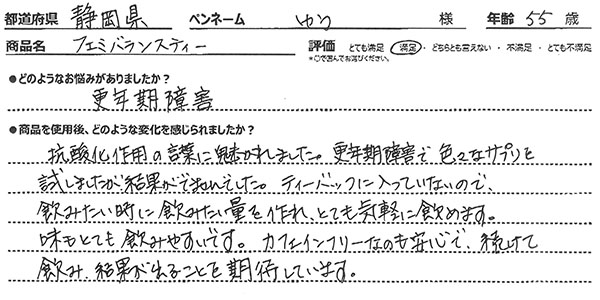 都道府県 静岡県 ペンネーム ゆり 様 年齢 55 歳
商品名 フェミバランスティー 評価 とても満足 ・ 満足 ・ どちらとも言えない ・ 不満足 ・ とても不満足
*○で囲んでお選びください。
●どのようなお悩みがありましたか？
更年期障害
●商品を使用後、どのような変化を感じられましたか？
抗酸化作用の言葉に魅かれました。更年期障害で色々なサプリを
試しましたが結果がでませんでした。ティーバックに入っていないので、
飲みたい時に飲みたい量を作れ、とても気軽に飲めます。
味もとても飲みやすいです。カフェインフリーなのも安心で、続けて
飲み、結果が出ることを期待しています。